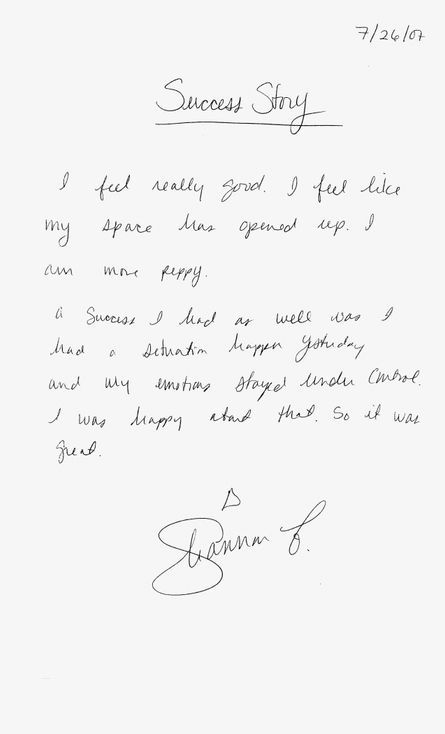 7/26/07
Success Story
I feel really good. I feel like
my space has opened up. I
am more peppy.
a Success I had as well was I
had a situation happen yesterday
and my emotions stayed under control.
I was happy about that. So it was
great.
Shannon